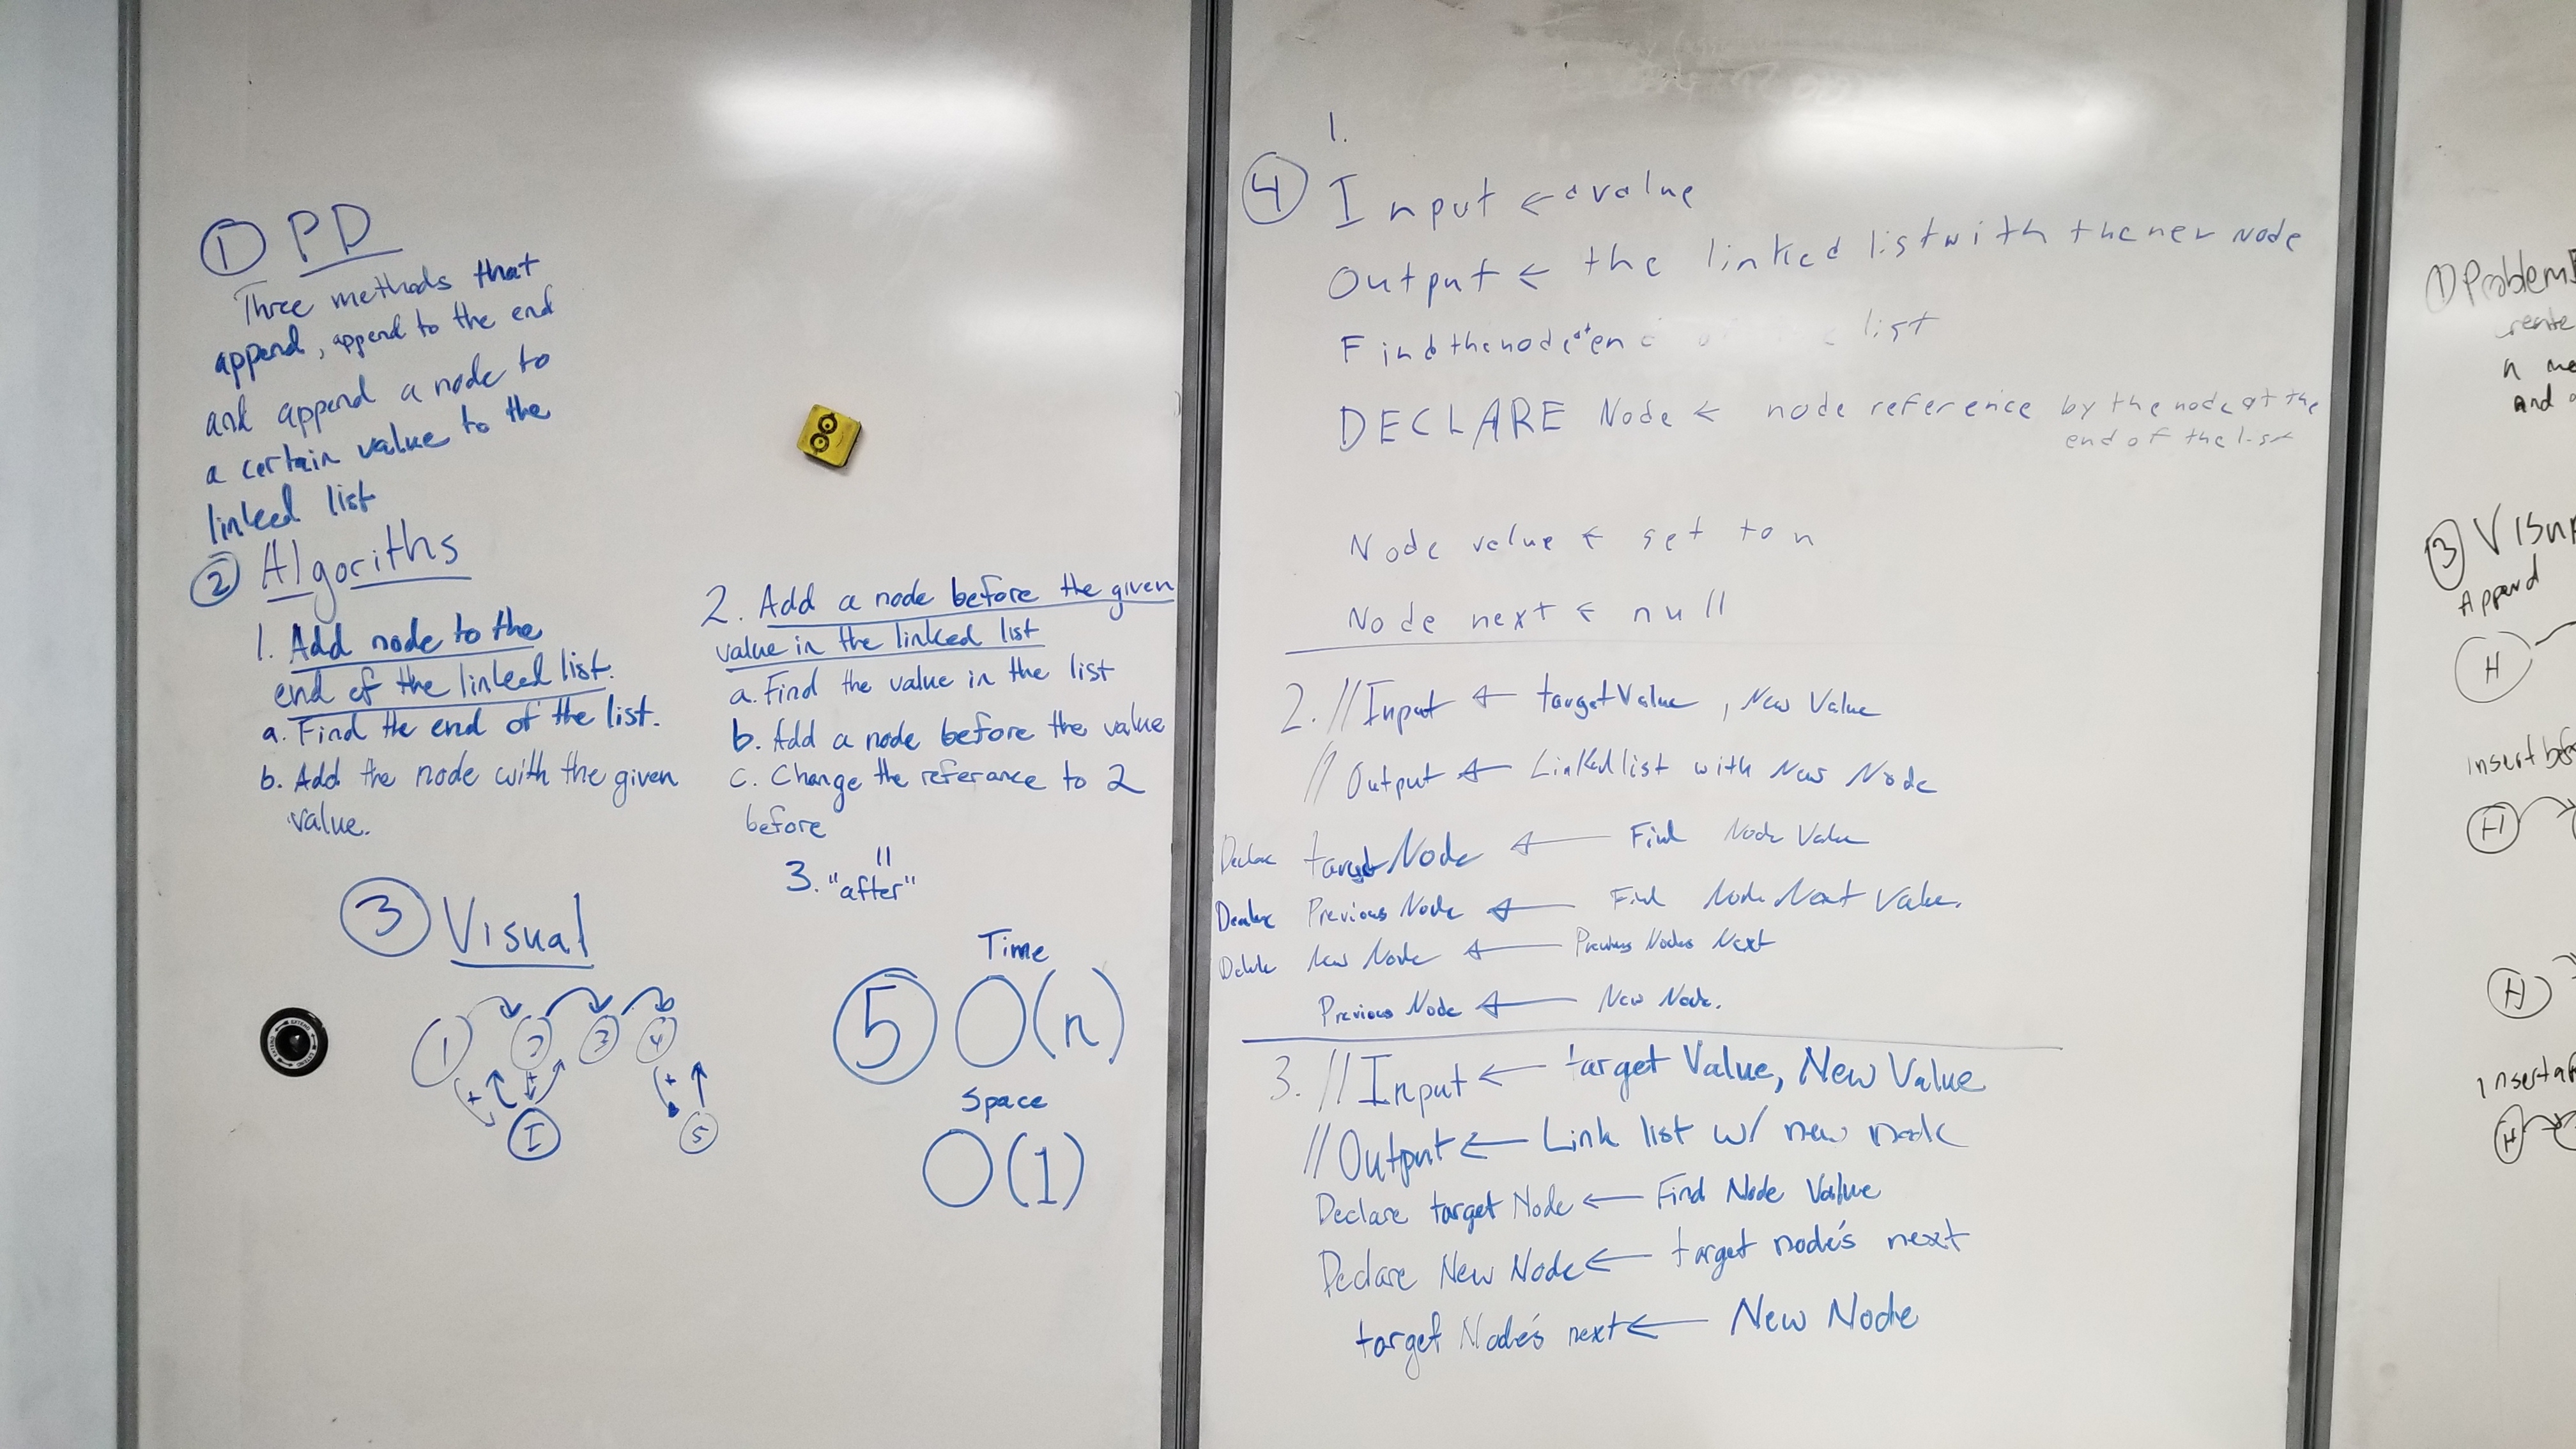 ① PD
Three methods that
append, append to the end
and append a node to
a certain value to the
linked list
② Algoriths
1. Add node to the
end of the linked list.
a. Find the end of the list.
b. Add the node with the given
value.
2. Add a node before the given
value in the linked list
a. Find the value in the list
b. Add a node before the value
c. Change the referance to 2
before
3. "after"
③ Visual
1 2 3 4
I 5
Time
⑤ O(n)
Space
O(1)
1.
④ Input ← a value
Output ← the linked list with the new node
Find the node at en list
DECLARE Node ← node reference by the node at the
end of the list
Node value ← set to n
Node next ← null
2. // Input ← target Value, New Value
// Output ← Linked list with New Node
Declare target Node ← Find Node Value
Declare Previous Node ← Find Node Next Value.
New Node ← Previous Nodes Next
Previous Node ← New Node.
3. // Input ← target Value, New Value
// Output ← Link list w/ new node
Declare target Node ← Find Node Value
Declare New Node ← target node's next
target Node's next ← New Node
① Problem
n me
and
③ Visu
Append
H
insert bef
H
H
insert a
H